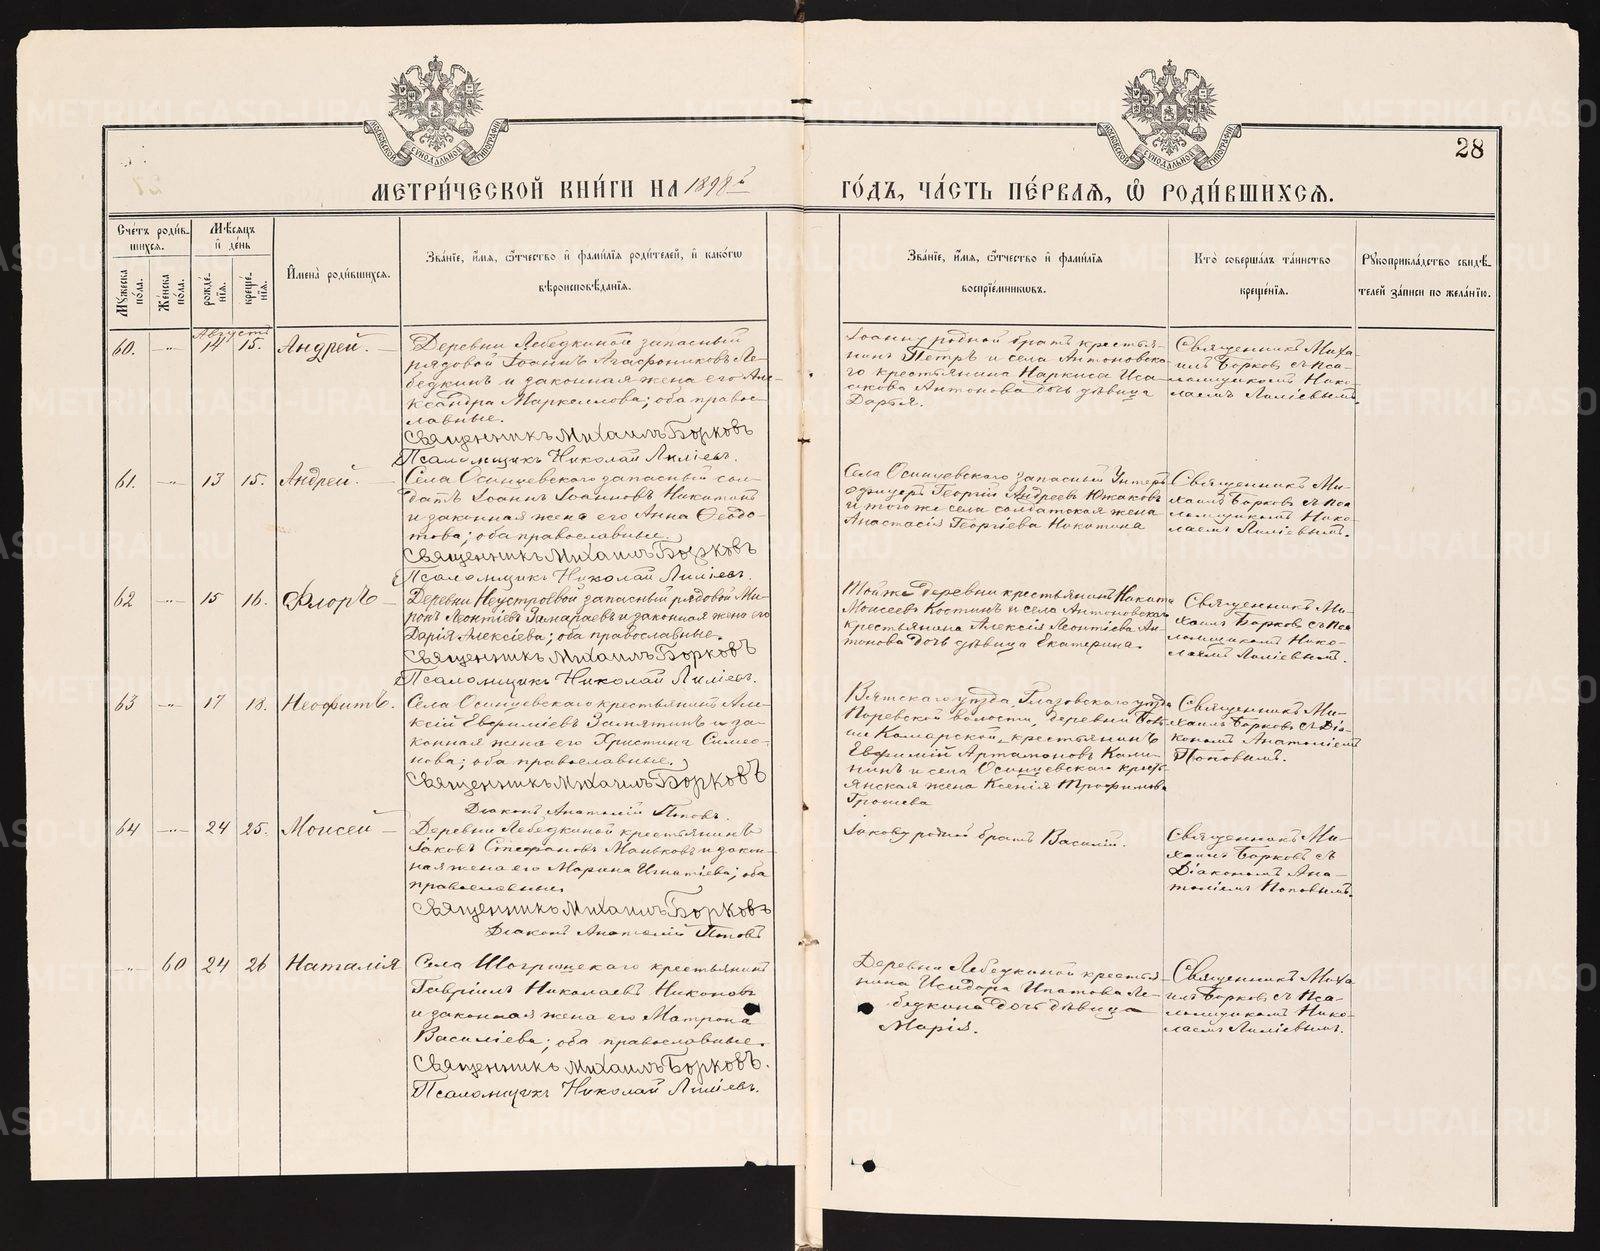 МОСКОВСКОЙ СѴНОДАЛЬНОЙ ТИПОГРАФІИ
МОСКОВСКОЙ СѴНОДАЛЬНОЙ ТИПОГРАФІИ
28
МЕТРИ́ЧЕСКОЙ КНИ́ГИ НА 1898 й
ГО́ДЪ, ЧА́СТЬ ПЕ́РВАѦ, Ѽ РОДИ́ВШИХСѦ.
Сче́тъ роди́в-
шихсѧ.
Мꙋ́жеска по́ла.
Же́нска по́ла.
Мѣ́сѧцъ
и҆ де́нь
рожде́-
нїѧ.
креще́-
нїѧ.
И҆мена̀ роди́вшихсѧ.
Зва́нїе, и҆́мѧ, ѻ҆́тчество и҆ фами́лїѧ роди́телей, и҆ како́гѡ
вѣроисповѣ́данїѧ.
Зва́нїе, и҆́мѧ, ѻ҆́тчество и҆ фами́лїѧ
воспрїе́мникѡвъ.
Кто̀ соверша́лъ та́инство
креще́нїѧ.
Рꙋкоприкла́дство свидѣ́-
телей за́писи по жела́нїю.
Августъ
60. -"- 14 15. Андрей. —
Деревни Лебедкиной запасный
рядовой Іоаннъ Агафониковъ Ле-
бедкинъ и законная жена его Але-
ксандра Маркеллова; оба правос-
лавные.
Священникъ Михаилъ Борковъ
Псаломщикъ Николай Лиліевъ.
Іоанну родной братъ крестья-
нинъ Петръ и села Антоновско-
го крестьянина Наркиса Иса-
акова Антонова дочь дѣвица
Дарья.
Священникъ Миха-
илъ Борковъ съ Пса-
ломщикомъ Нико-
лаемъ Лиліевымъ.
61. -"- 13 15. Андрей. —
Села Осинцевского запасный сол-
датъ Іоаннъ Іоанновъ Никитинъ
и законная жена его Анна Ѳеодо-
това; оба православные.
Священникъ Михаилъ Борковъ
Псаломщикъ Николай Лиліевъ.
Села Осинцевского запасный Унтеръ
офицеръ Георгій Андреевъ Южаковъ
и того же села солдатская жена
Анастасія Георгіева Никитина
Священникъ Ми-
хаилъ Борковъ съ Пса
ломщикомъ Нико-
лаемъ Лиліевымъ.
62 -"- 15 16. Флоръ —
Деревни Неустроевой запасный рядовой Ми-
ронъ Леонтіевъ Замараевъ и законная жена его
Дарія Алексіева; оба православные.
Священникъ Михаилъ Борковъ
Псаломщикъ Николай Лиліевъ.
Той же деревни крестьянинъ Никита
Моисеевъ Костинъ и села Антоновскаго
крестьянина Алексія Леонтіева Ан-
тонова дочь дѣвица Екатерина.
Священникъ Ми-
хаилъ Борковъ съ Пса
ломщикомъ Нико-
лаемъ Лиліевымъ.
63 -"- 17 18. Неофитъ.
Села Осинцевского крестьянинъ Але-
ксій Евфиміевъ Замятинъ и за-
конная жена его Христина Симео-
нова; оба православные.
Священникъ Михаилъ Борковъ
Діаконъ Анатолій Поповъ.
Вятскаго уѣзда, Глазовскаго уѣзда
волости, деревни
Комарской, крестьянинъ
Евфимій Артамоновъ Кали-
нинъ и села Осинцевскаго кресть-
янская жена Ксенія Трофимова
Грошева
Священникъ Ми-
хаилъ Борковъ съ Діа-
кономъ Анатоліемъ
Поповымъ.
64 -"- 24 25. Моисей —
Деревни Лебедкиной крестьянинъ
Іаковъ Стефановъ Маньковъ и закон-
ная жена его Марина Игнатіева; оба
православные.
Священникъ Михаилъ Борковъ
Діаконъ Анатолій Поповъ
Іакову родной братъ Василій.
Священникъ Ми-
хаилъ Борковъ съ
Діакономъ Ана-
толіемъ Поповымъ.
-"- 60 24 26 Наталія
Села Шогринскаго крестьянинъ
Гавріилъ Николаевъ Никоновъ
и законная жена его Матрона
Василіева; оба православные.
Священникъ Михаилъ Борковъ.
Псаломщикъ Николай Лиліевъ.
Деревни Лебедкиной крестья
нина Исидора Ипатова Ле-
бедкина дочь дѣвица
Марія.
Священникъ Миха
илъ Борковъ съ Пса-
ломщикомъ Нико-
лаемъ Лиліевымъ.
METRIKI.GASO-URAL.RU